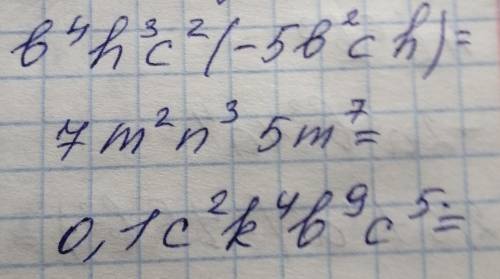 b⁴h³c²(-5b²ch)=
7m²n³5m⁷=
0,1c²k⁴b⁹c⁵=